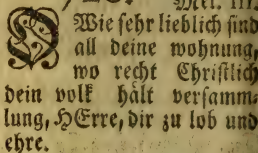 Mel. III.
O Wie sehr lieblich sind
all deine wohnung,
wo recht Christlich
dein volk hält versamm-
lung, HErre, dir zu lob und
ehre.